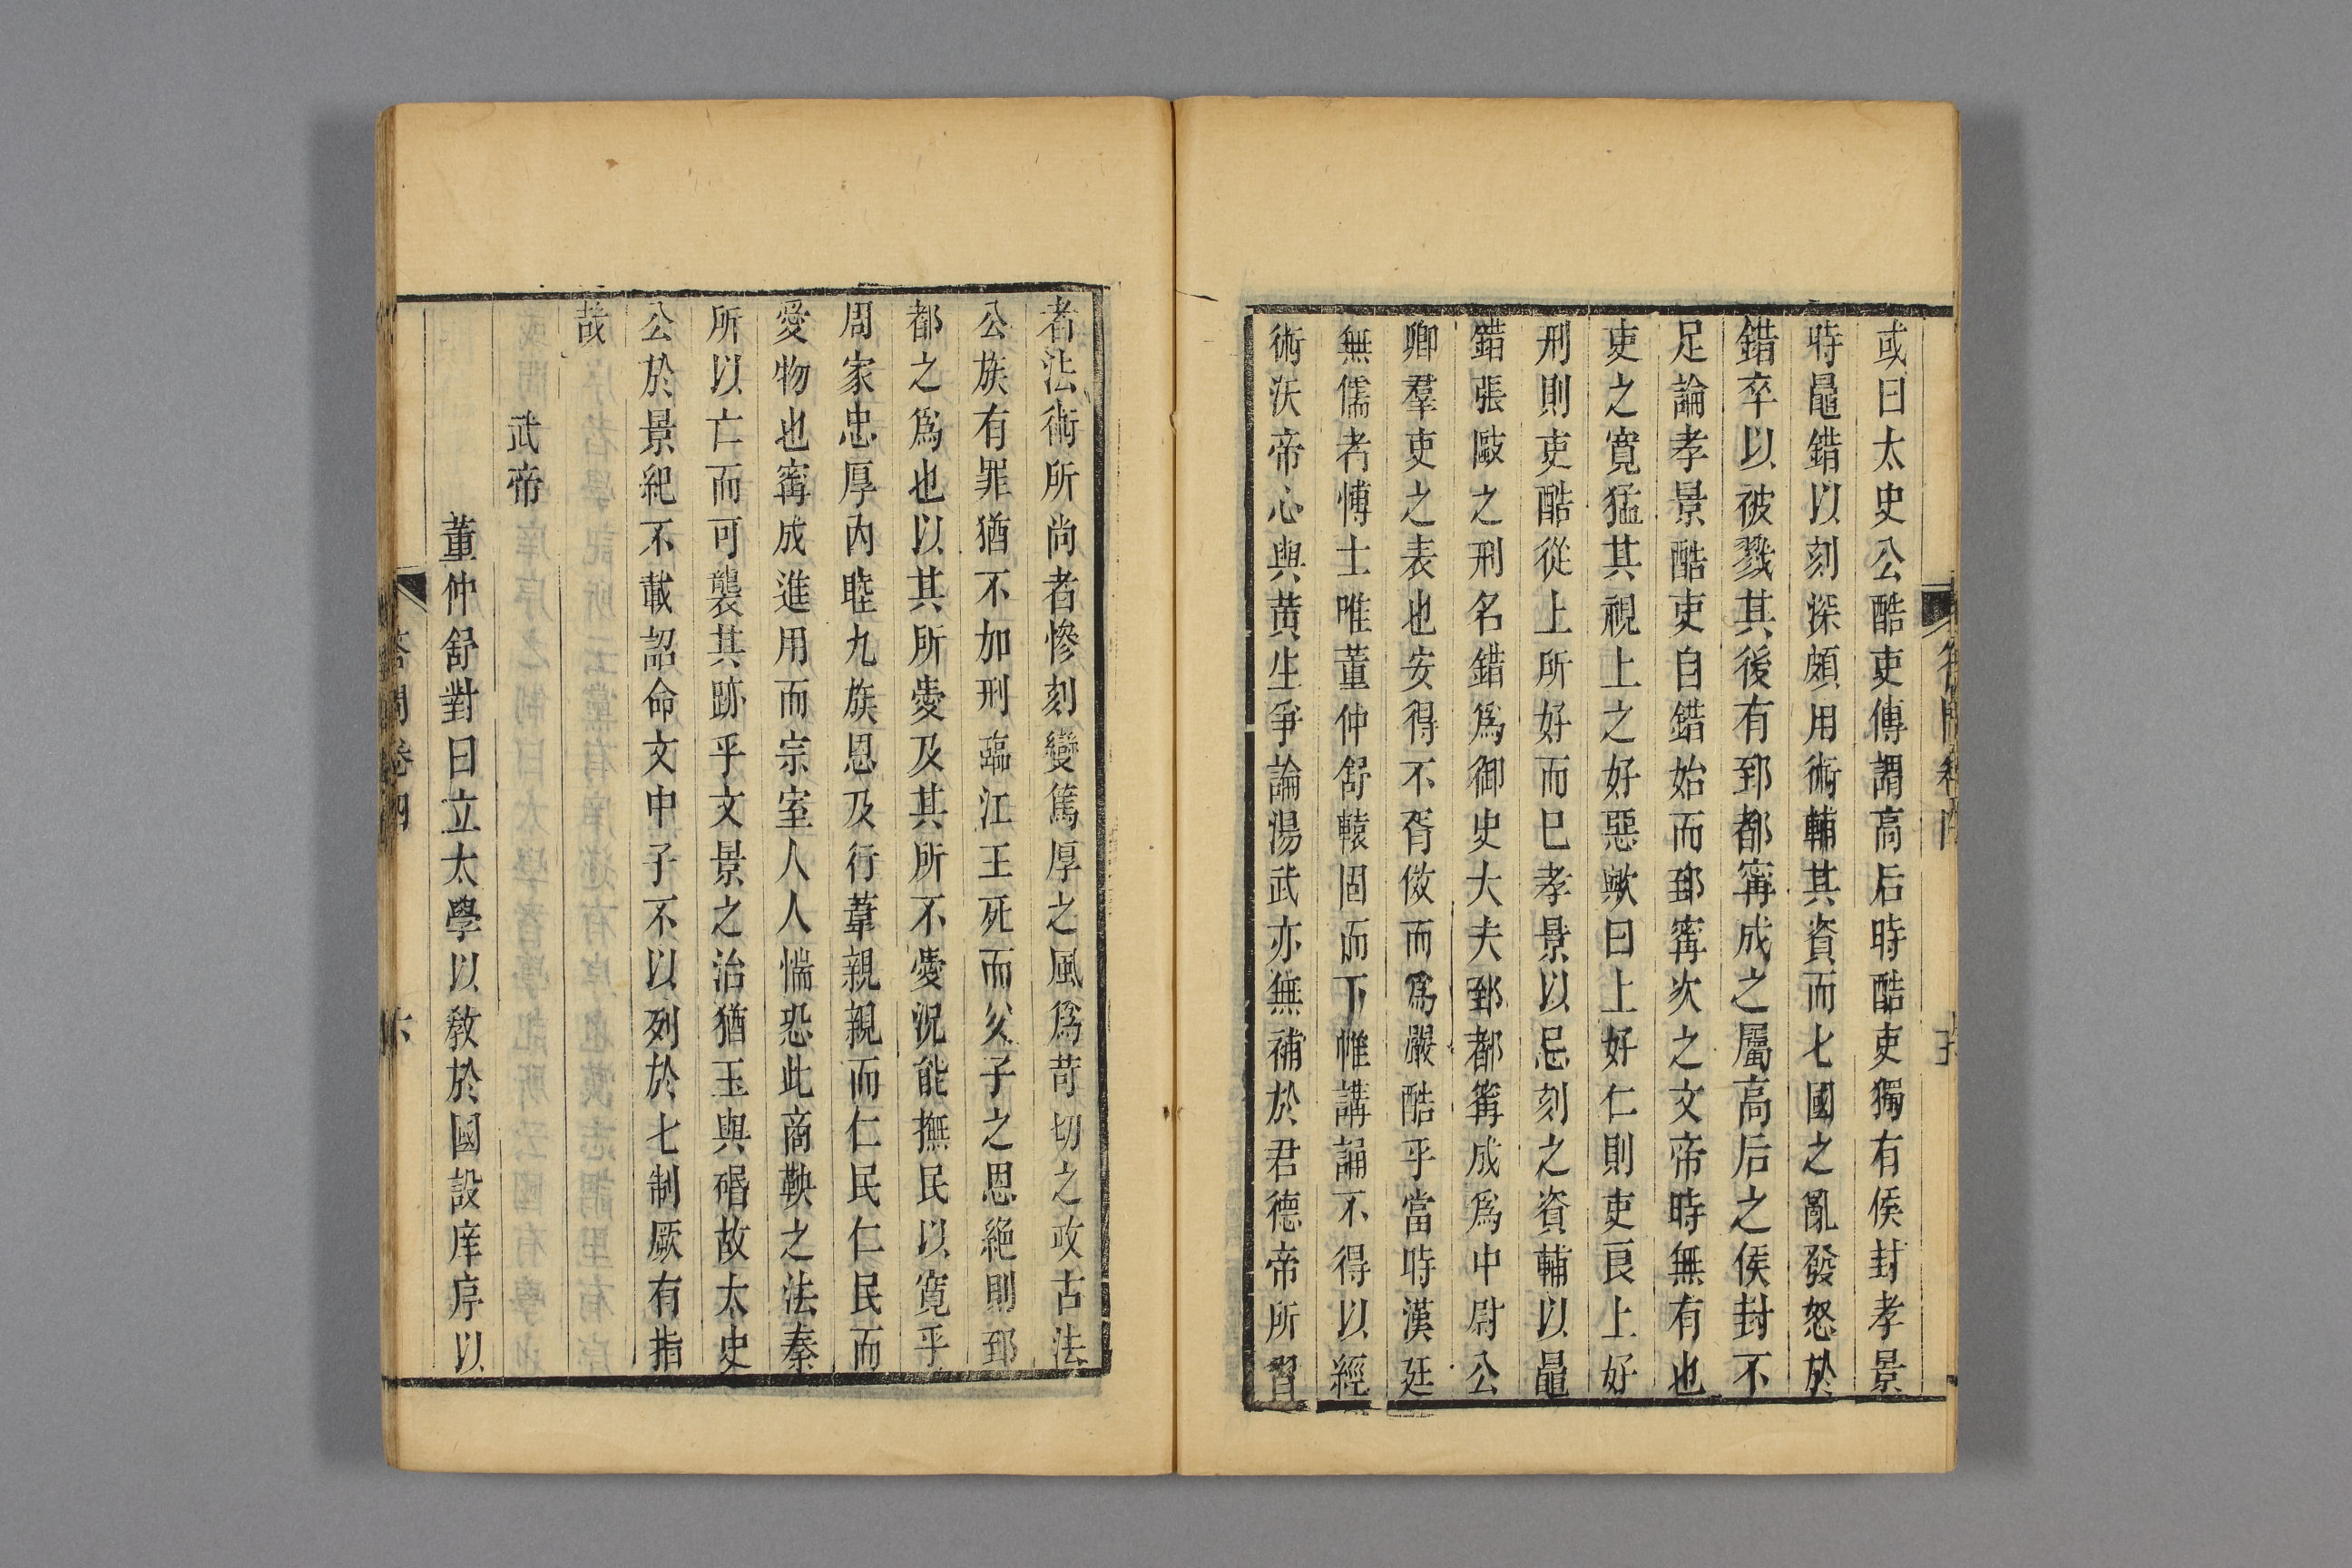 或曰太史公酷吏傳謂高后時酷吏獨有侯封孝景
時鼂錯以刻深頗用術輔其資而七國之亂發怒於
錯卒以被戮其後有郅都甯成之屬高后之侯封不
足論孝景酷吏自錯始而郅甯次之文帝時無有也
吏之寛猛其視上之好惡歟曰上好仁則吏良上好
刑則吏酷從上所好而已孝景以忌刻之資輔以鼂
錯張敺之刑名錯爲御史大夫郅都甯成爲中尉公
卿羣吏之表也安得不胥傚而爲嚴酷乎當時漢廷
無儒者博士唯董仲舒轅固而下帷講誦不得以經
術沃帝心與黄生爭論湯武亦無補於君德帝所習
者法術所尚者慘刻變篤厚之風爲苛切之政古法
公族有罪猶不加刑臨江王死而父子之恩絶則郅
都之爲也以其所愛及其所不愛況能撫民以寛乎
周家忠厚内睦九族恩及行葦親親而仁民仁民而
愛物也甯成進用而宗室人人惴恐此商鞅之法秦
所以亡而可襲其跡乎文景之治猶玉與碈故太史
公於景紀不載詔命文中子不以列於七制厥有指
哉
武帝
董仲舒對曰立太學以敎於國設庠序以
答問卷四
六